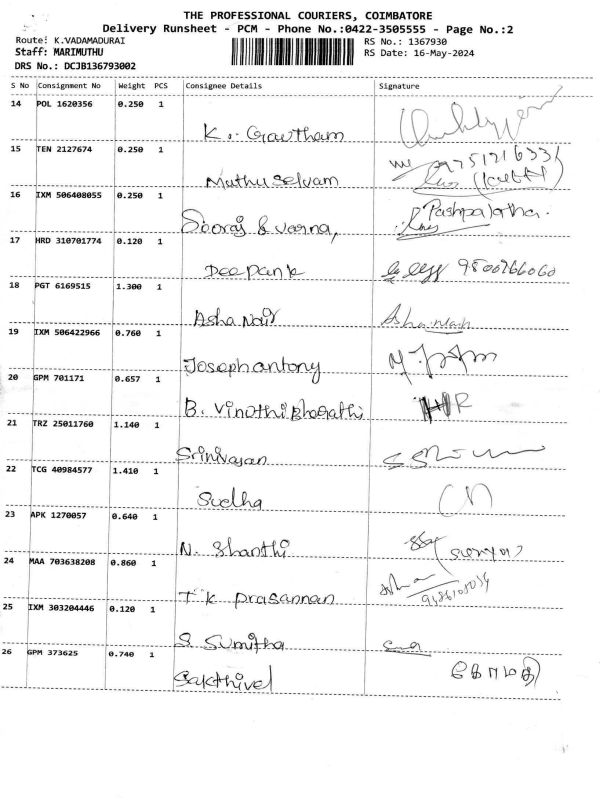 THE PROFESSIONAL COURIERS, COIMBATORE
Delivery Runsheet - PCM - Phone No.:0422-3505555 - Page No.:2
Route: K.VADAMADURAI RS No.: 1367930
Staff: MARIMUTHU RS Date: 16-May-2024
DRS No.: DCJB136793002
S No Consignment No Weight PCS Consignee Details Signature
14 POL 1620356 0.250 1
K. Gowtham
15 TEN 2127674 0.250 1
Muthu Selvam
16 IXM 506408055 0.250 1
Sooraj & varna, Pashpalatha.
17 HRD 310701774 0.120 1
Deepank 9800766060
18 PGT 6169515 1.300 1
Asha Nair Asha
19 IXM 506422966 0.760 1
Joseph antony
20 GPM 701171 0.657 1
B. Vinothi Bharathi HR
21 TRZ 25011760 1.140 1
Srinivasan
22 TCG 40984577 1.410 1
Sudha
23 APK 1270057 0.640 1
N. Shanthi
24 MAA 703638208 0.860 1
T K Prasannan
25 IXM 303204446 0.120 1
S. Sumitha
26 GPM 373625 0.740 1
Sakthivel கோமதி